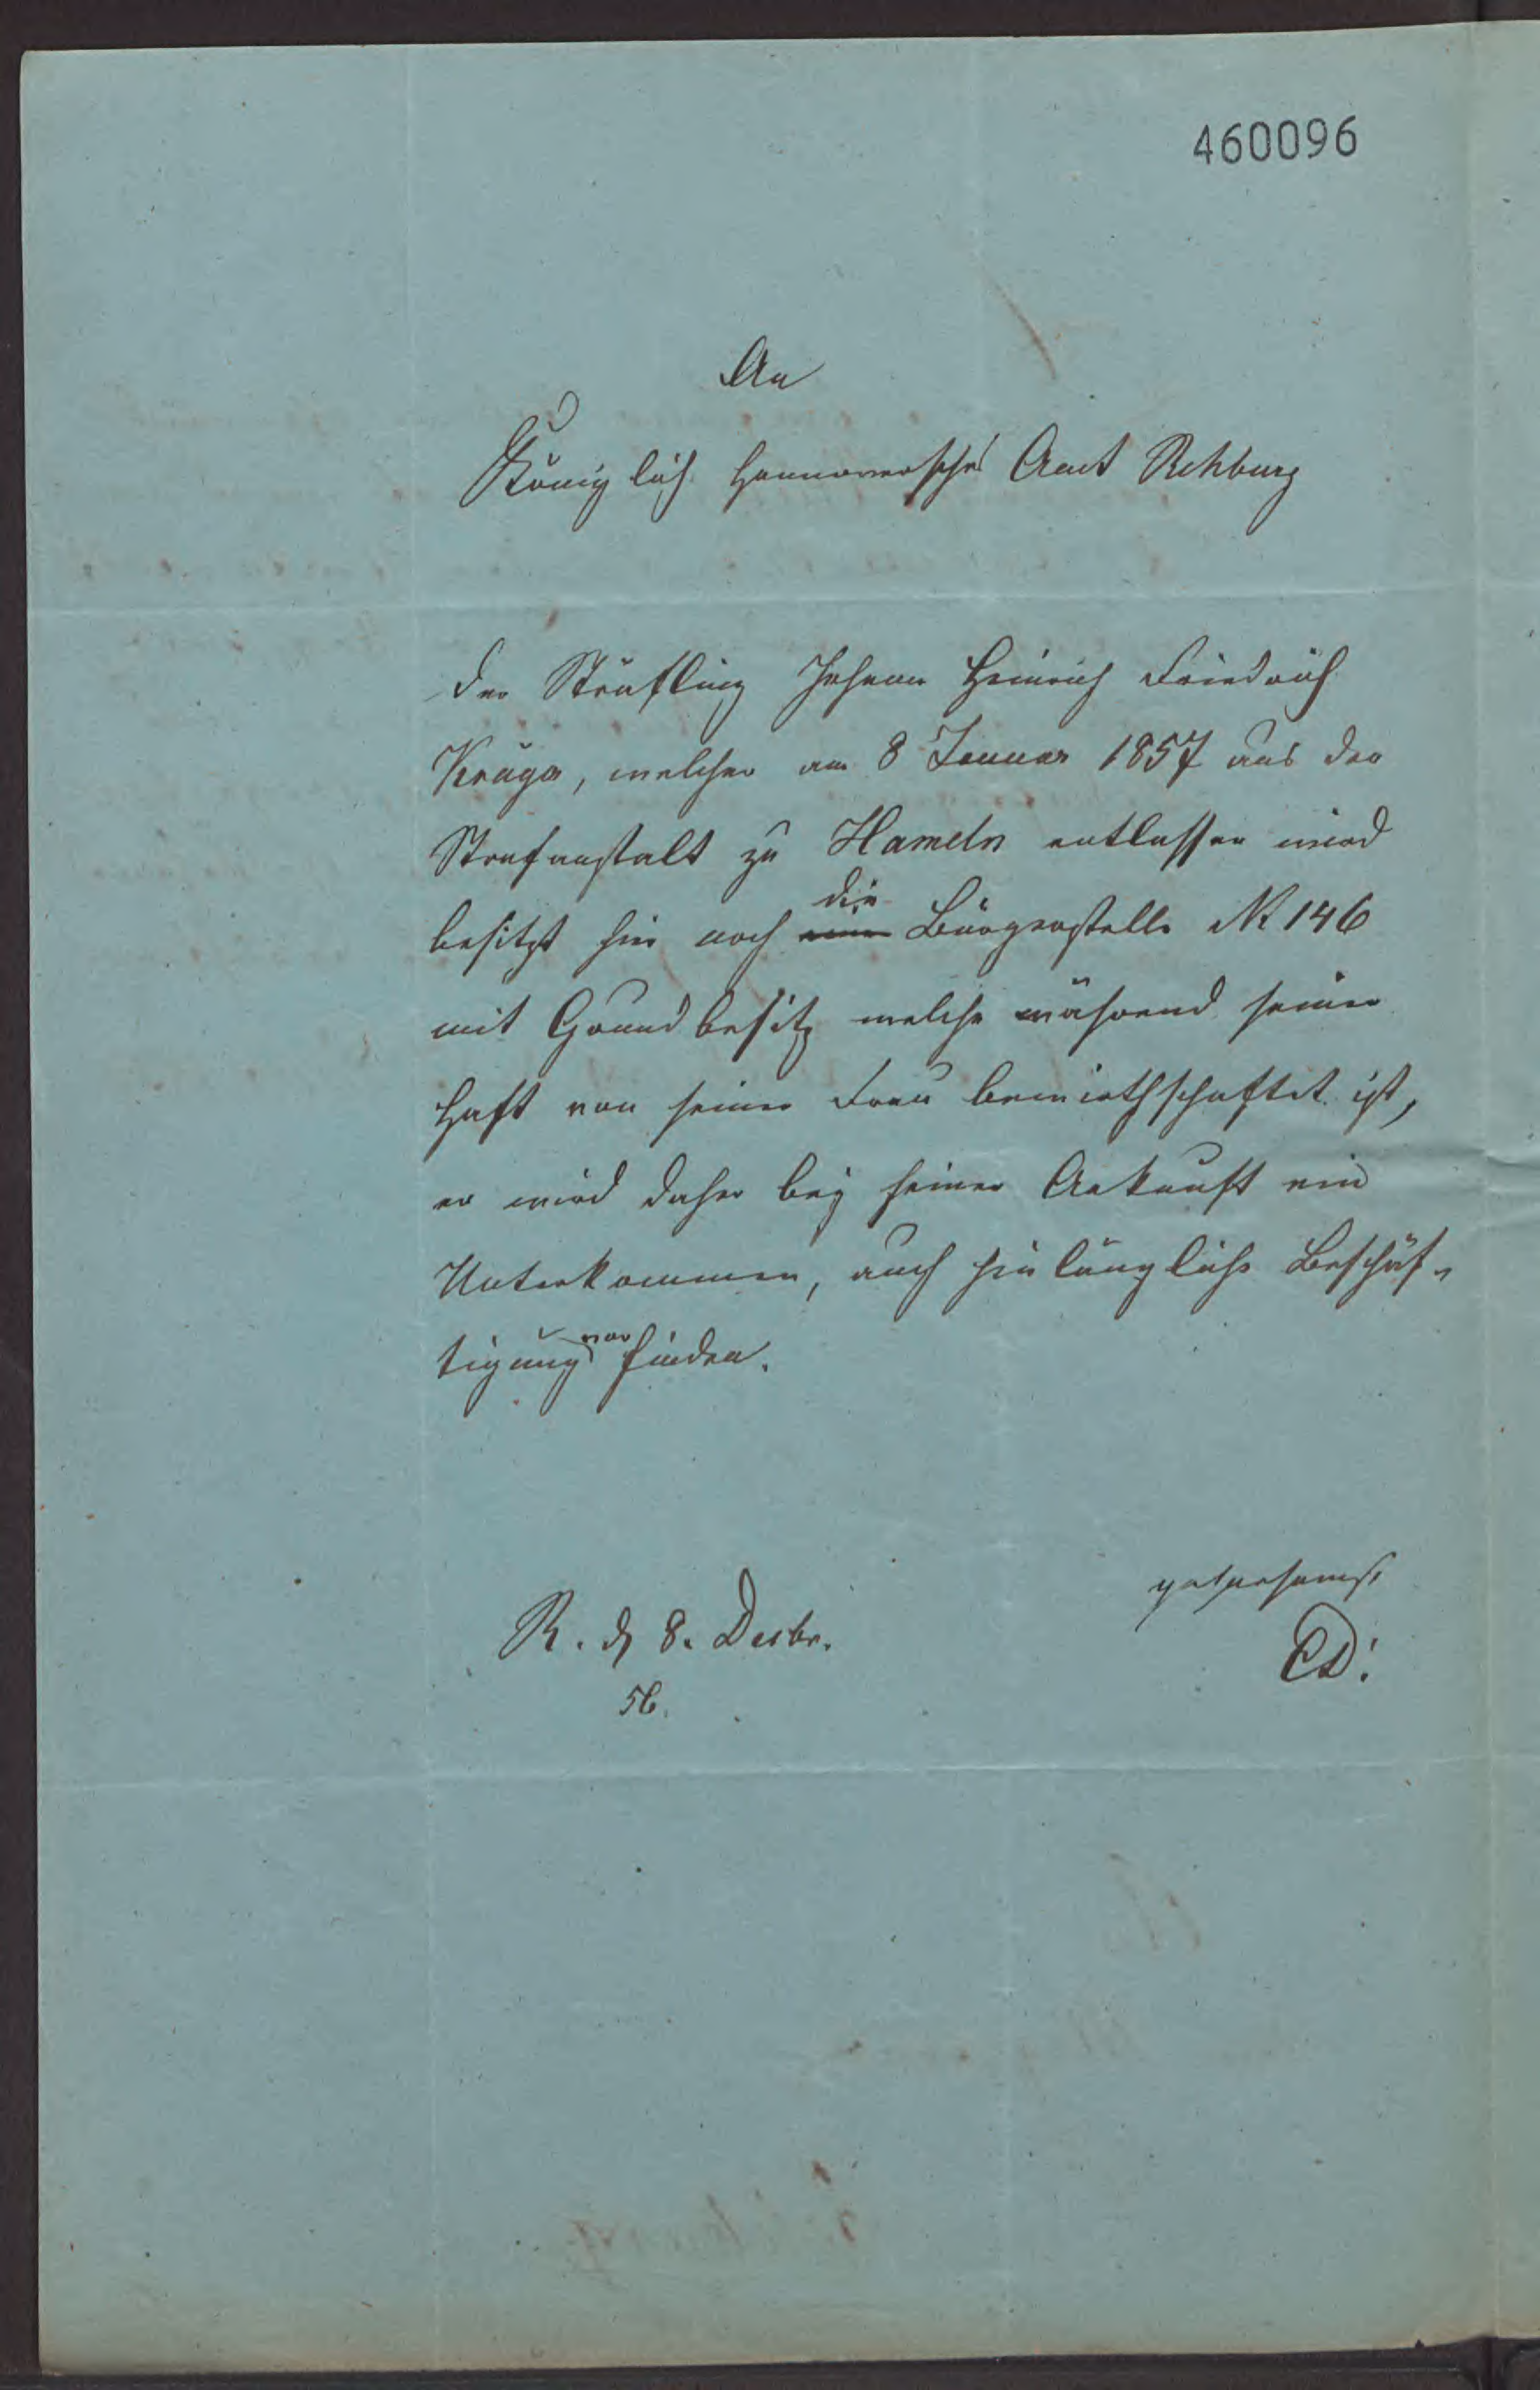 460096
An
Königlich Hannoversches Amt Rehburg
Der Sträfling Johann Heinrich Friedrich
Krüger, welcher am 8 Januar 1857 aus der
Strafanstalt zu Hameln entlassen wird
die
besitzt hier noch eine Bürgerstelle N 146
mit Grundbesitz welche während seiner
Haft von seiner Frau bewirthschaftet ist,
er wird daher bey seiner Ankunft ein
Unterkommen, auch hinlängliche Beschäf-
vor
tigung finden.
gehorsamst
R. d 8. Decbr.
56.